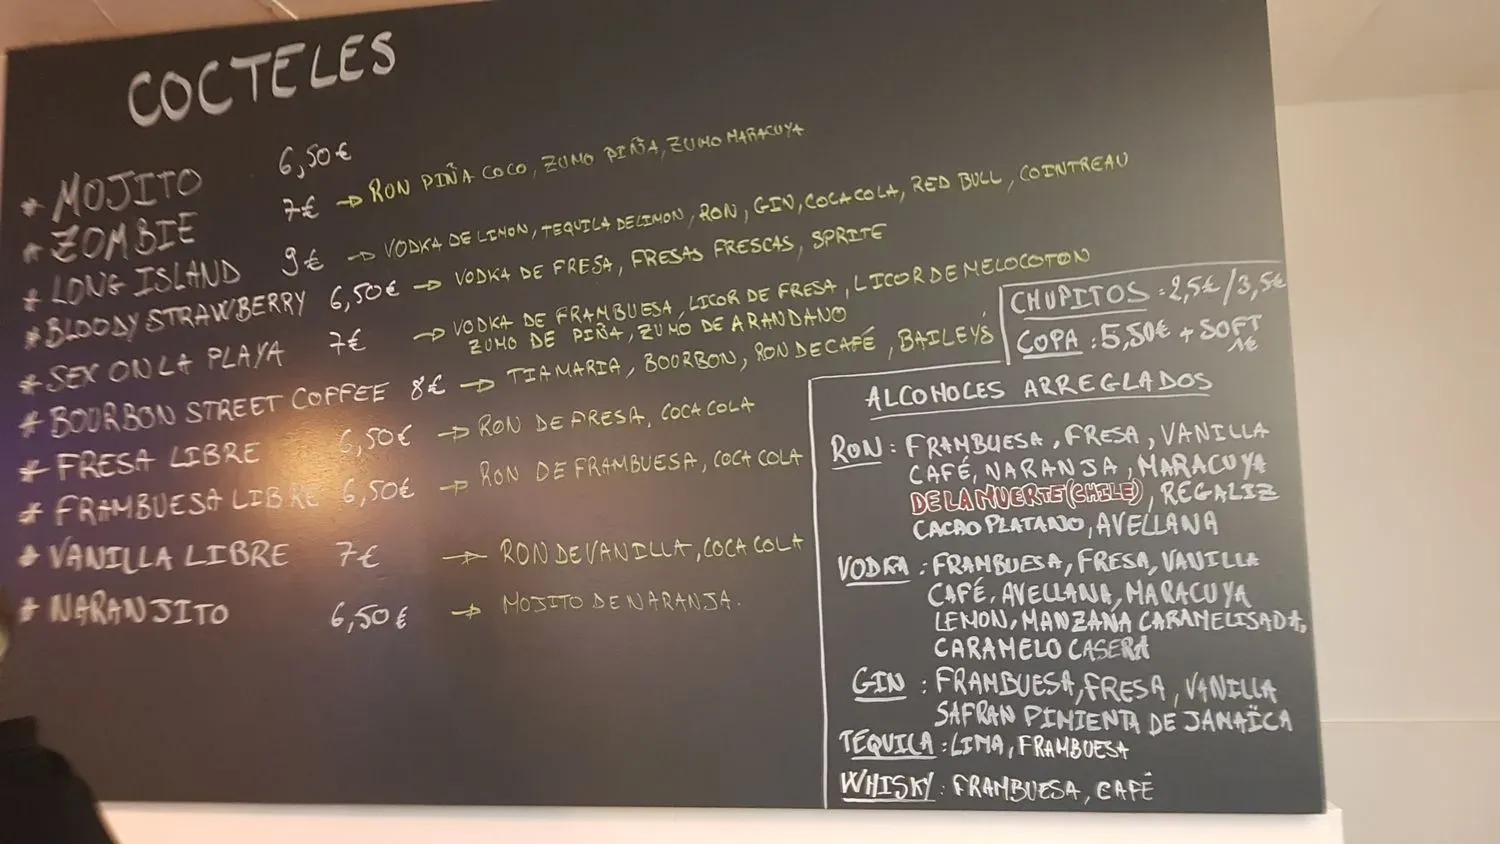 COCTELES
* MOJITO 6,50€
* ZOMBIE 7€ → RON PIÑA COCO, ZUMO PIÑA, ZUMO MARACUYA
* LONG ISLAND 9€ → VODKA DE LIMON, TEQUILA DE LIMON, RON, GIN, COCA COLA, RED BULL, COINTREAU
* BLOODY STRAWBERRY 6,50€ → VODKA DE FRESA, FRESAS FRESCAS, SPRITE
* SEX ON LA PLAYA 7€ → VODKA DE FRAMBUESA, LICOR DE FRESA, LICOR DE MELOCOTON
ZUMO DE PIÑA, ZUMO DE ARANDANO
* BOURBON STREET COFFEE 8€ → TIA MARIA, BOURBON, RON DE CAFÉ, BAILEYS
* FRESA LIBRE 6,50€ → RON DE FRESA, COCA COLA
* FRAMBUESA LIBRE 6,50€ → RON DE FRAMBUESA, COCA COLA
* VANILLA LIBRE 7€ → RON DE VANILLA, COCA COLA
* NARANJITO 6,50€ → MOJITO DE NARANJA.
CHUPITOS : 2,5€/3,5€
COPA : 5,50€ + SOFT
1€
ALCOHOLES ARREGLADOS
RON : FRAMBUESA, FRESA, VANILLA
CAFÉ, NARANJA, MARACUYA
DE LA MUERTE (CHILE), REGALIZ
CACAO PLATANO, AVELLANA
VODKA : FRAMBUESA, FRESA, VANILLA
CAFÉ, AVELLANA, MARACUYA
LEMON, MANZANA CARAMELISADA,
CARAMELO CASERA
GIN : FRAMBUESA, FRESA, VANILLA
SAFRAN PIMIENTA DE JAMAÏCA
TEQUILA : LIMA, FRAMBUESA
WHISKY : FRAMBUESA, CAFÉ